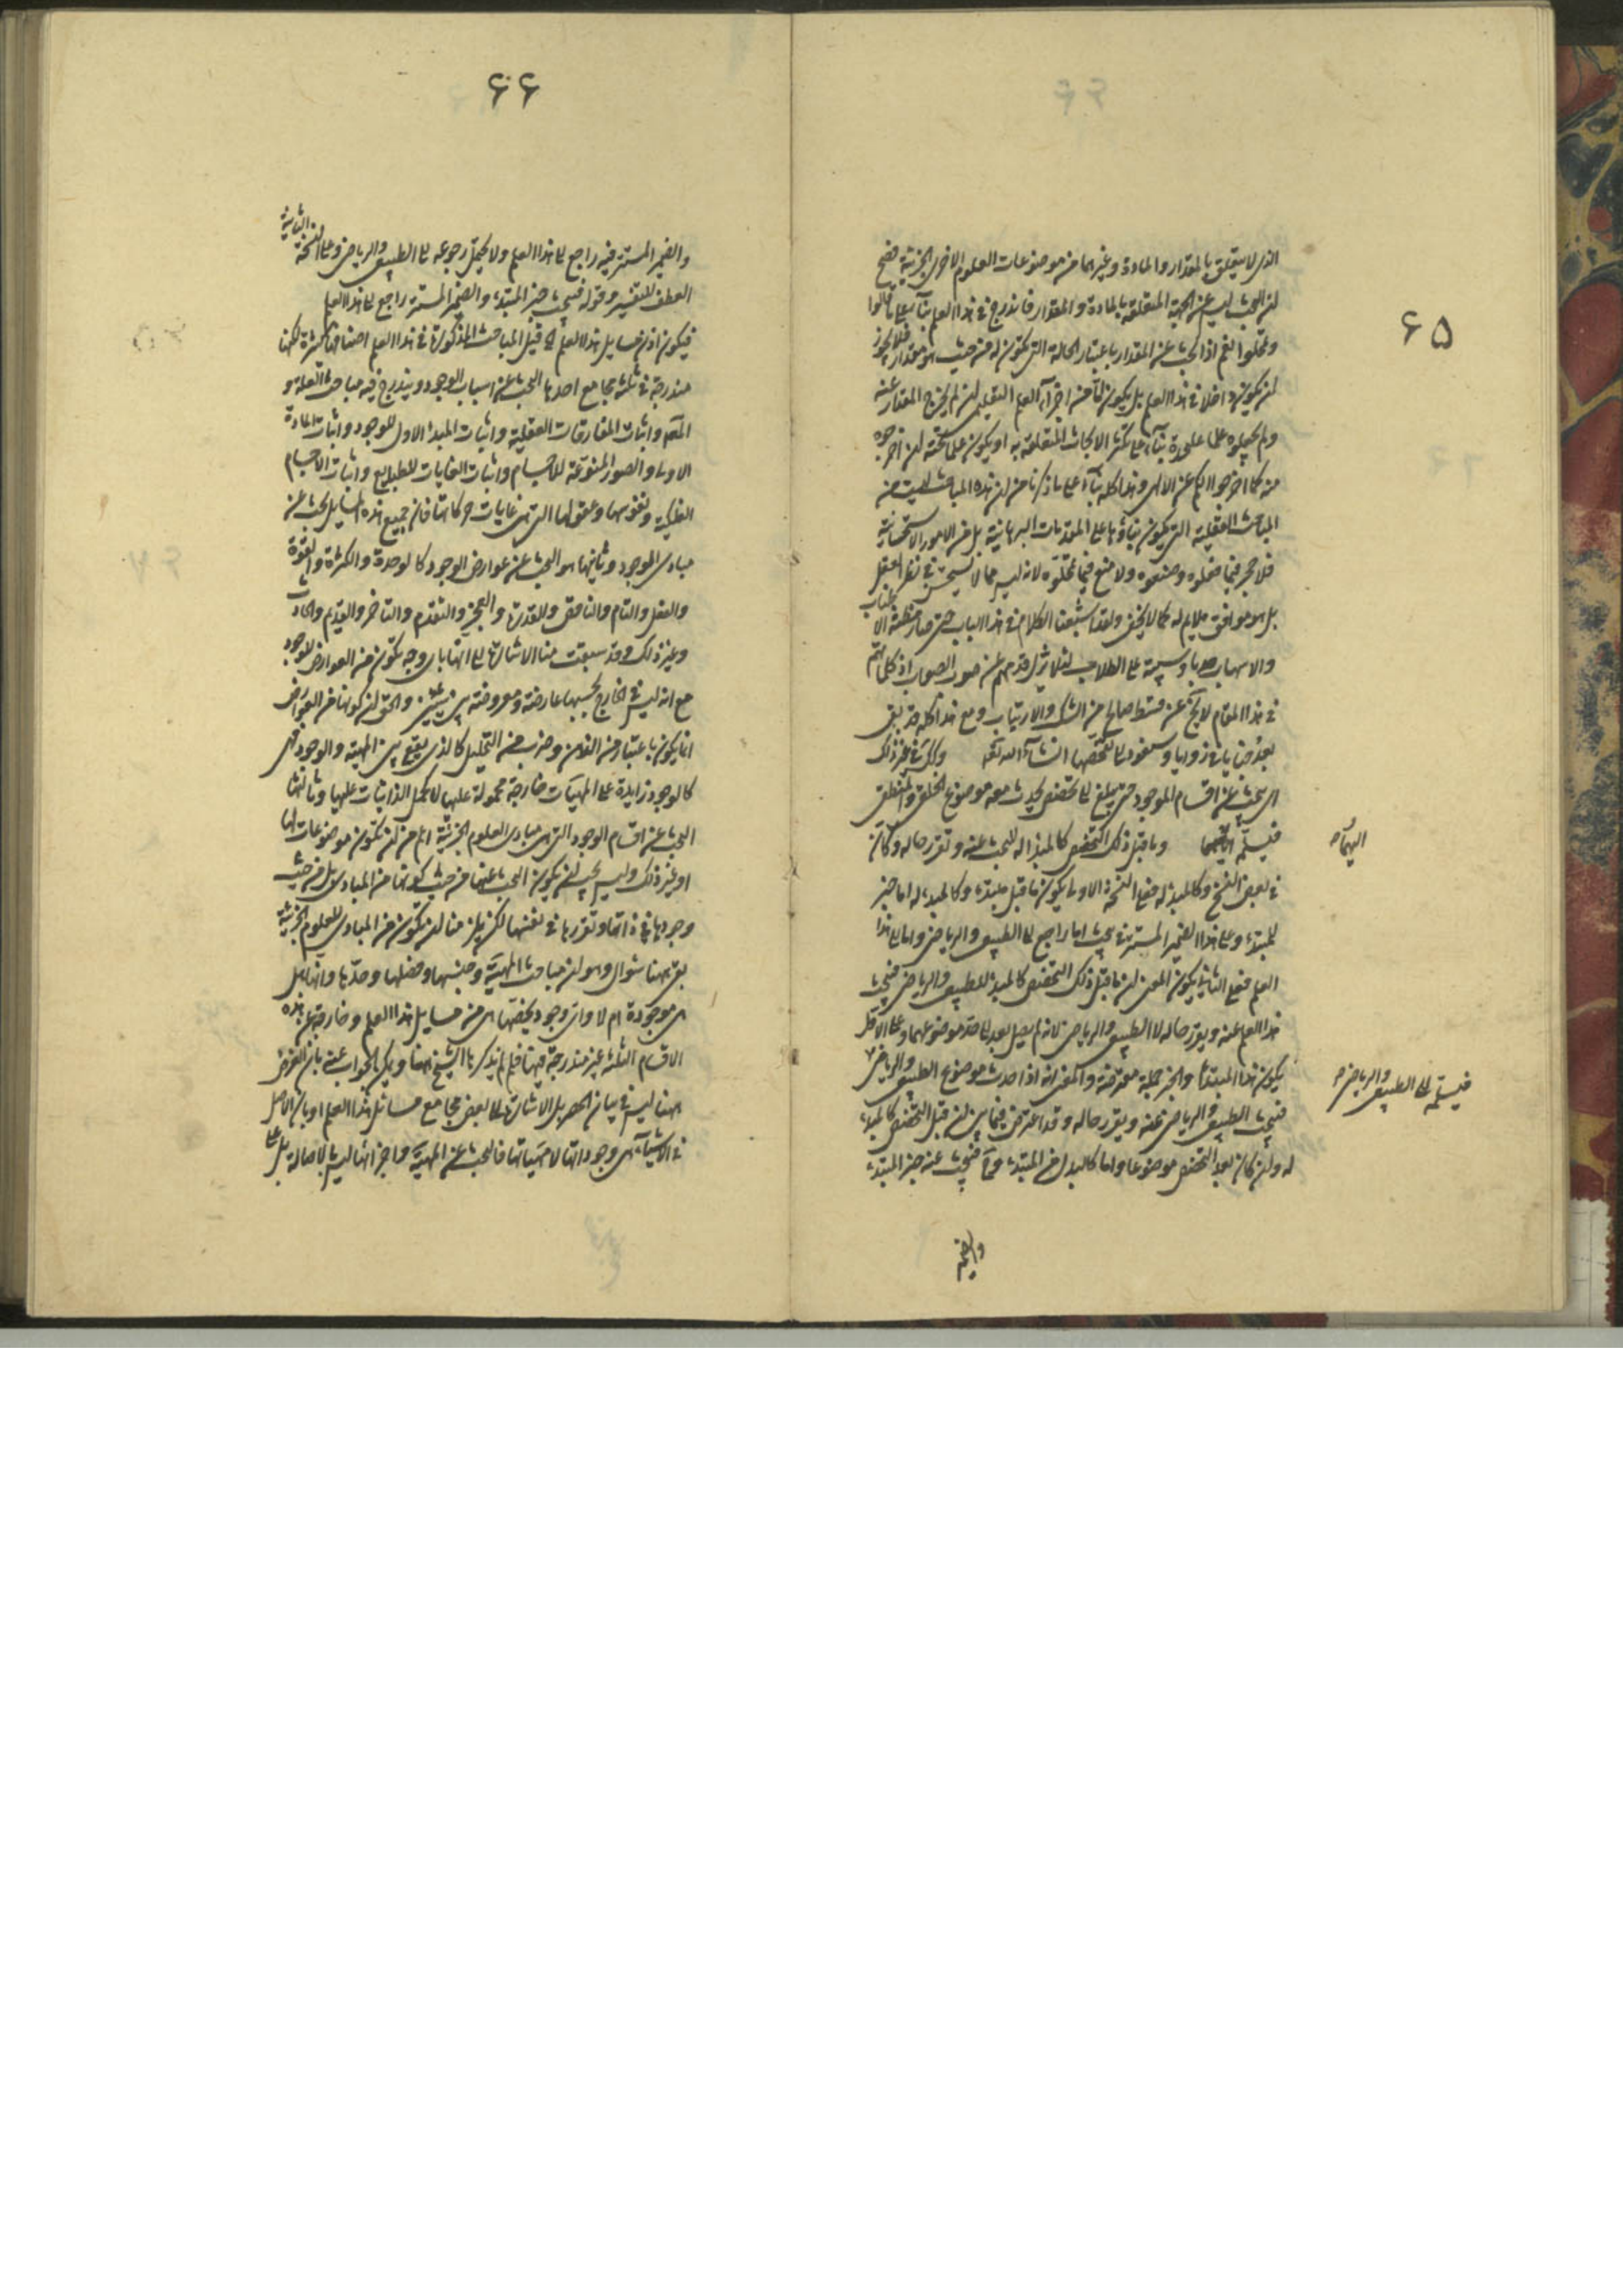 ٦٥
الذى لا يتعلق بالمقدار والمادة وغيرهما من موضوعات العلوم الاخرى الجزئية فصح
ان البحث ليس عن الجهة المتعلقة بالمادة والمقدار فاندرج فى هذا العلم بناء على ما قالوا
وتمحلوا نعم اذا بحث عن المقدار باعتبار الحالة التى تكون له من حيث هو مقدار فلا يجوز
ان يكون داخلا فى هذا العلم بل يكون اجزاء العلم التعليمى ان لم يخرج المقدار عنه
ولم يجعلوه علما علىحدة بناء على تكثر الابحاث المتعلقة به او يكون علما تحته ان اخرجوه
منه كما اخرجوا الكم عن الالهى وهذا كله بناء على ما ذكرنا من ان هذه المباحث ليست من
المباحث العقلية التى يكون بناؤها على المقدمات البرهانية بل من الامور الاستحسانية
فلا حجر فيما فعلوه وصنعوه ولا منع فيما تمحلوه لانه ليس مما لا يستحسن فى نظر العقل
بل هو موافق ملايم له كما لا يخفى ولقد اشبعنا الكلام فى هذا الباب حتى صار مظنة الاطناب
والاسهاب على الطلاب لئلا يزل قدمهم عن صوب الصواب اذ كلماتهم
فى هذا المقام لا يخ عن قسط صالح من الشك والارتياب ومع هذا كله قد بقى
بعد خبايا فى زوايا وسنعود الى تفحصها انشاء الله تعه وكك فى غير ذلك
اى يبحث عن اقسام الموجود حتى يبلغ الى تخصص يحدث معه موضوع الخلقى والمنطقى
فيسلمه اليهما وما قبل ذلك التخصص كالمبدا له فيبحث عنه وتقرر حاله وكان
اليهما
فى بعض النسخ وكالمبدا له فعلى النسخة الاولى يكون ما قبل مبتدء وكالمبدء له اما خبر
للمبتدء وعلى هذا الضمير المستتر فى يبحث اما راجع الى الطبيعى والرياضى واما الى هذا
العلم فعلى الثانى يكون المعنى ان ما قبل ذلك التخصص كالمبدء للطبيعى والرياضى فيبحث
هذا العلم عنه ويقرر حاله لا الطبيعى والرياضى لانه لم يصل بعد الى حد موضوعهما وعلى الاول
يكون هذا المبتدا والخبر جملة معترضة والمعنى انه اذا حدث موضوع الطبيعى والرياضى
فيسلمه الى الطبيعى والرياضى
فيبحث الطبيعى والرياضى عنه ويقرر حاله وقد اعترض فيما بين ان قبل التخصص كالمبدء
له وان كان بعد التخصص موضوعا واما كالبدل من المبتدء فيبحث عنه خبر المبتدء
والضمير
٦٦
والضمير المستتر فيه راجع الى هذا العلم ولا يحتمل رجوعه الى الطبيعى والرياضى وعلى النسخة الثانية
العطف للتفسير وقوله فيبحث خبر المبتدء والضمير المستتر راجع الى هذا العلم
فيكون اذن مسايل هذا العلم اى قبيل المباحث المذكورة فى هذا العلم اصنافا كثيرة لكنها
مندرجة فى ثلثة مجامع احدها البحث عن اسباب الوجود ويندرج فيه مباحث العلة و
المعلول واثبات المفارقات العقلية واثبات المبدا الاول للوجود واثبات المادة
الاولى والصور المنوعة للاجسام واثبات الغايات للطبايع واثبات الاجسام
الفلكية ونفوسها وعقولها التى هى غايات حركاتها فان جميع هذه المسايل يبحث عن
مبادى الموجود وثانيها هو البحث عن عوارض الوجود كالوحدة والكثرة والقوة
والفعل والتام والناقص والقدرة والعجز والتقدم والتاخر والقديم والحادث
وغير ذلك وقد سبقت منا الاشارة الى انها باى وجه تكون من العوارض للوجود
مع انه ليس فى الخارج بحسبها عارضة ومعروضة بين شيئين والحق ان كونها من العوارض
انما يكون باعتبار من الذهن وضرب من التحليل كالذى يقع بين المهية والوجود فهى
كالوجود زايدة على المهيات خارجة محمولة عليها لا كحمل الذاتيات عليها وثالثها
البحث عن اقسام الوجود التى هى مبادى العلوم الجزئية اعم من ان تكون موضوعات لها
او غير ذلك وليس يجب ان يكون البحث عنها من حيث كونها من المبادى بل من حيث
وجودها فى ذاتها وتقررها فى نفسها لكن يلزمها ان تكون من المبادى للعلوم الجزئية
بقى ههنا سؤال وهو ان مباحث المهية وجنسها وفصلها وحدها وانها هل
هى موجودة ام لا واى وجود يخصها هى من مسايل هذا العلم وخارجة عن هذه
الاقسام الثلثة غير مندرجة فيها فلم لم يذكرها الشيخ ههنا ويمكن الجواب عنه بان الغرض
ههنا ليس فى بيان الحصر بل الاشارة الى بعض مجامع مسائل هذا العلم او بان الاصل
فى الاشياء هى وجوداتها لا مهياتها فالبحث عن المهية واجزائها ليس بالاصالة بل على